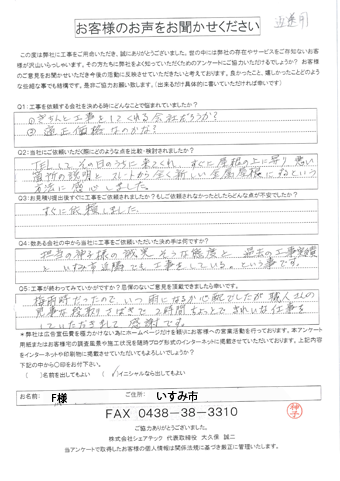 お客様のお声をお聞かせください
この度は弊社に工事をご用命いただき、誠にありがとうございました。世の中には弊社の存在やサービスをご存知ないお客
様が沢山いらっしゃいます。その方たちも弊社をよく知っていただくためのアンケートにご協力いただけるでしょうか？お客様
のご意見をお聞かせいただき今後の活動に反映させていただきたいと考えております。良かったこと、嬉しかったことどのよう
な些細な事でも結構です。是非ご協力お願いします。（出来るだけ具体的に書いていただければ幸いです）
Q1：工事を依頼する会社を決める時にどんなことで悩まれていましたか？
①きちんと工事をしてくれる会社だろうか？
②適正価格なのかな？
Q2：当社にご依頼いただく際にどのような点を比較・検討されましたか？
TELしてその日のうちに来てくれ、すぐに屋根の上に昇り悪い
箇所の説明とスレートから全く新しい金属屋根にするという
方法に感心しました。
Q3：お見積り提出後すぐにご依頼されましたか？もしご依頼されなかったとしたらどんな点が不安でしたか？
すぐに依頼しました。
Q4：数ある会社の中から当社に工事をご依頼いただいた決め手は何ですか？
担当の神子様の誠実そうな態度と過去の工事実績
といすみ市近隣でも工事をしている。という事です。
Q5：工事が終わってみていかがですか？忌憚のないご意見を頂戴できましたら幸いです。
梅雨時だったので、いつ雨になるか心配でしたが職人さんの
見事な段取りさばきで2時間ちょっとできれいな仕事を
していただきまして感謝です。
＊弊社は広告宣伝費を極力かけない為にホームページだけを頼りにお客様への営業活動を行っております。本アンケート
用紙またはお客様宅の調査風景や施工状況を随時ブログ形式のインターネットに掲載させていただいております。上記内容
をインターネットや印刷物に掲載させていただいてもよろしいでしょうか？
下記の中から○印をお付け下さい。
（　）名前を出してもよい　（✓）イニシャルなら出してもよい
お名前： F様 ご住所： いすみ市
FAX 0438-38-3310
神子
ご協力ありがとうございました。
株式会社シェアテック 代表取締役 大久保 誠二
当アンケートで取得したお客様の個人情報は関係法規に基づき厳正に管理いたします。